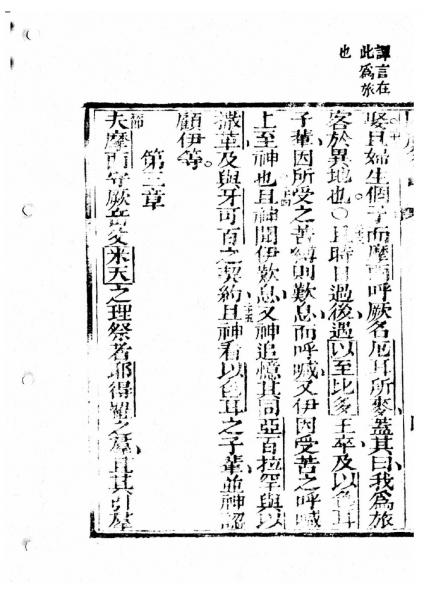 譯言在
此爲旅
也
娶且婦生個子而摩西呼厥名厄耳所麥蓋其曰我爲旅
客於異地也〇且時日過後遇以至比多王卒及以色耳
子輩因所受之苦縛則歎息而呼喊又伊因受苦之呼喊
上至神也且神聞伊歎息又神追憶其同亞百拉罕與以
撒革及與牙可百之契約且神看以色耳之子輩並神認
顧伊等。
第三章
節
夫摩西守厥岳父米天之理祭者耶得羅之羣且其引羣